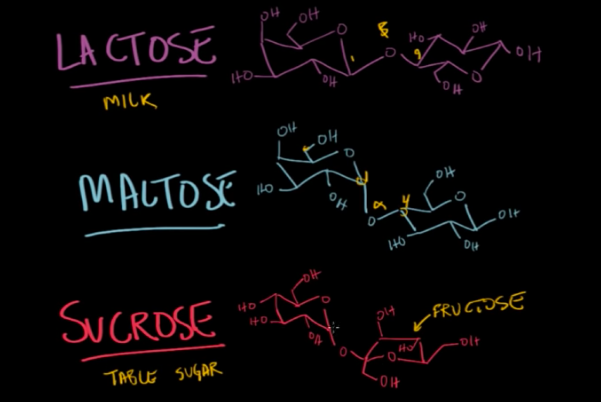 LACTOSE
MILK
OH
OH
O
HO
OH
1
β
O
4
HO
OH
OH
O
OH
MALTOSE
OH
OH
O
HO
OH
1
α
O
4
OH
O
OH
HO
OH
SUCROSE
TABLE SUGAR
OH
HO
O
HO
OH
O
OH
HO
O
OH
OH
FRUCTOSE